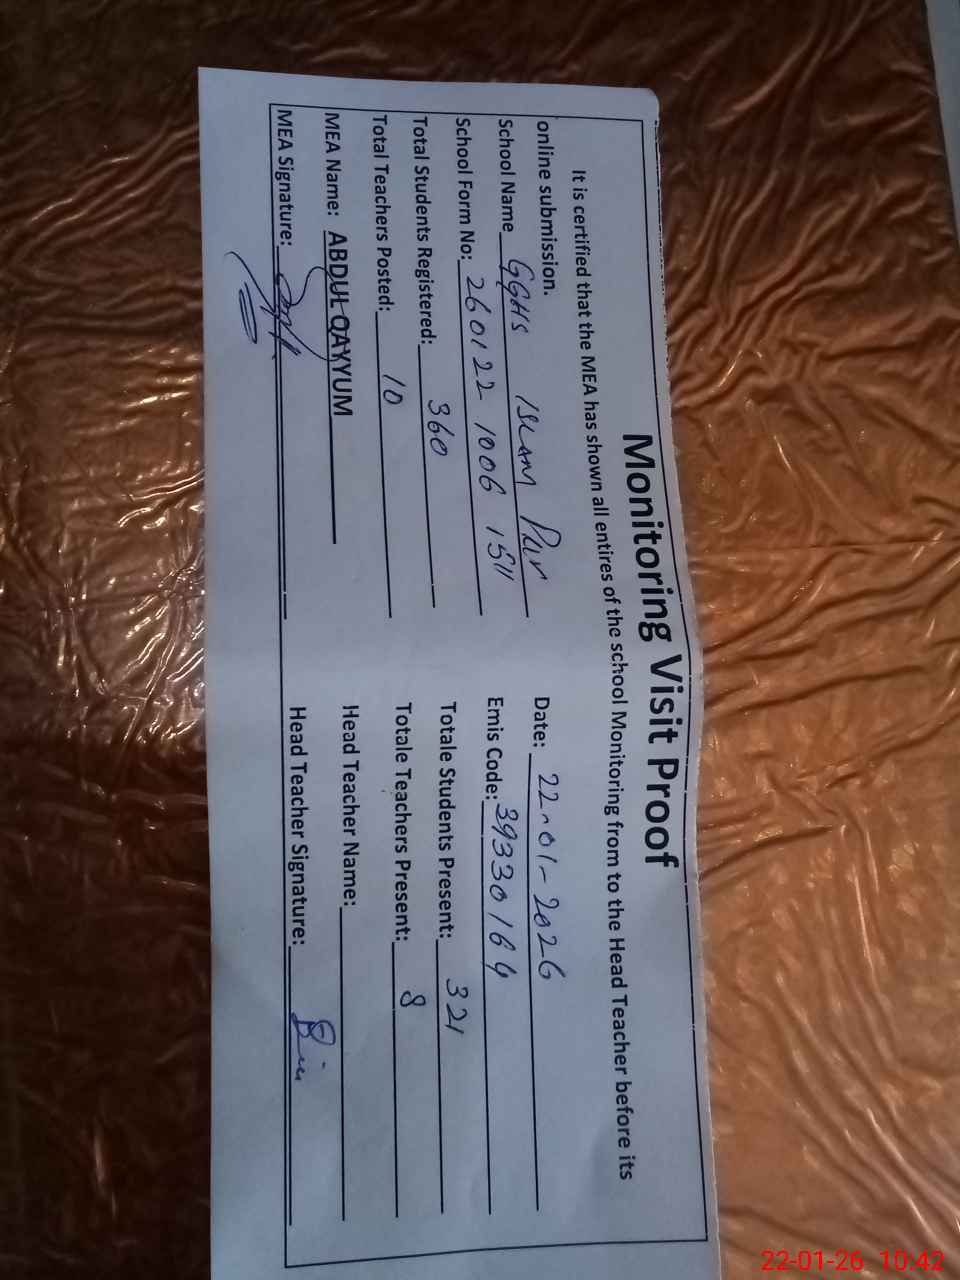 Monitoring Visit Proof
It is certified that the MEA has shown all entires of the school Monitoring from to the Head Teacher before its
online submission.
School Name GGHS Islam Pur Date: 22-01-2026
School Form No: 260122 1006 1511 Emis Code: 39330164
Total Students Registered: 360 Totale Students Present: 321
Total Teachers Posted: 10 Totale Teachers Present: 8
MEA Name: ABDUL QAYYUM Head Teacher Name:
MEA Signature: Head Teacher Signature:
22-01-26 10:42